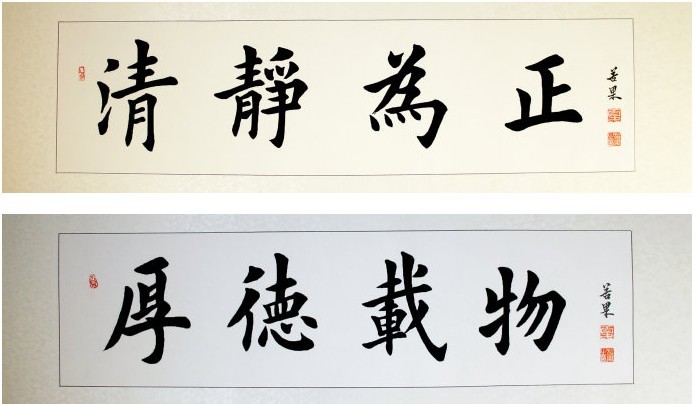 清靜為正
善果
厚德載物
善果